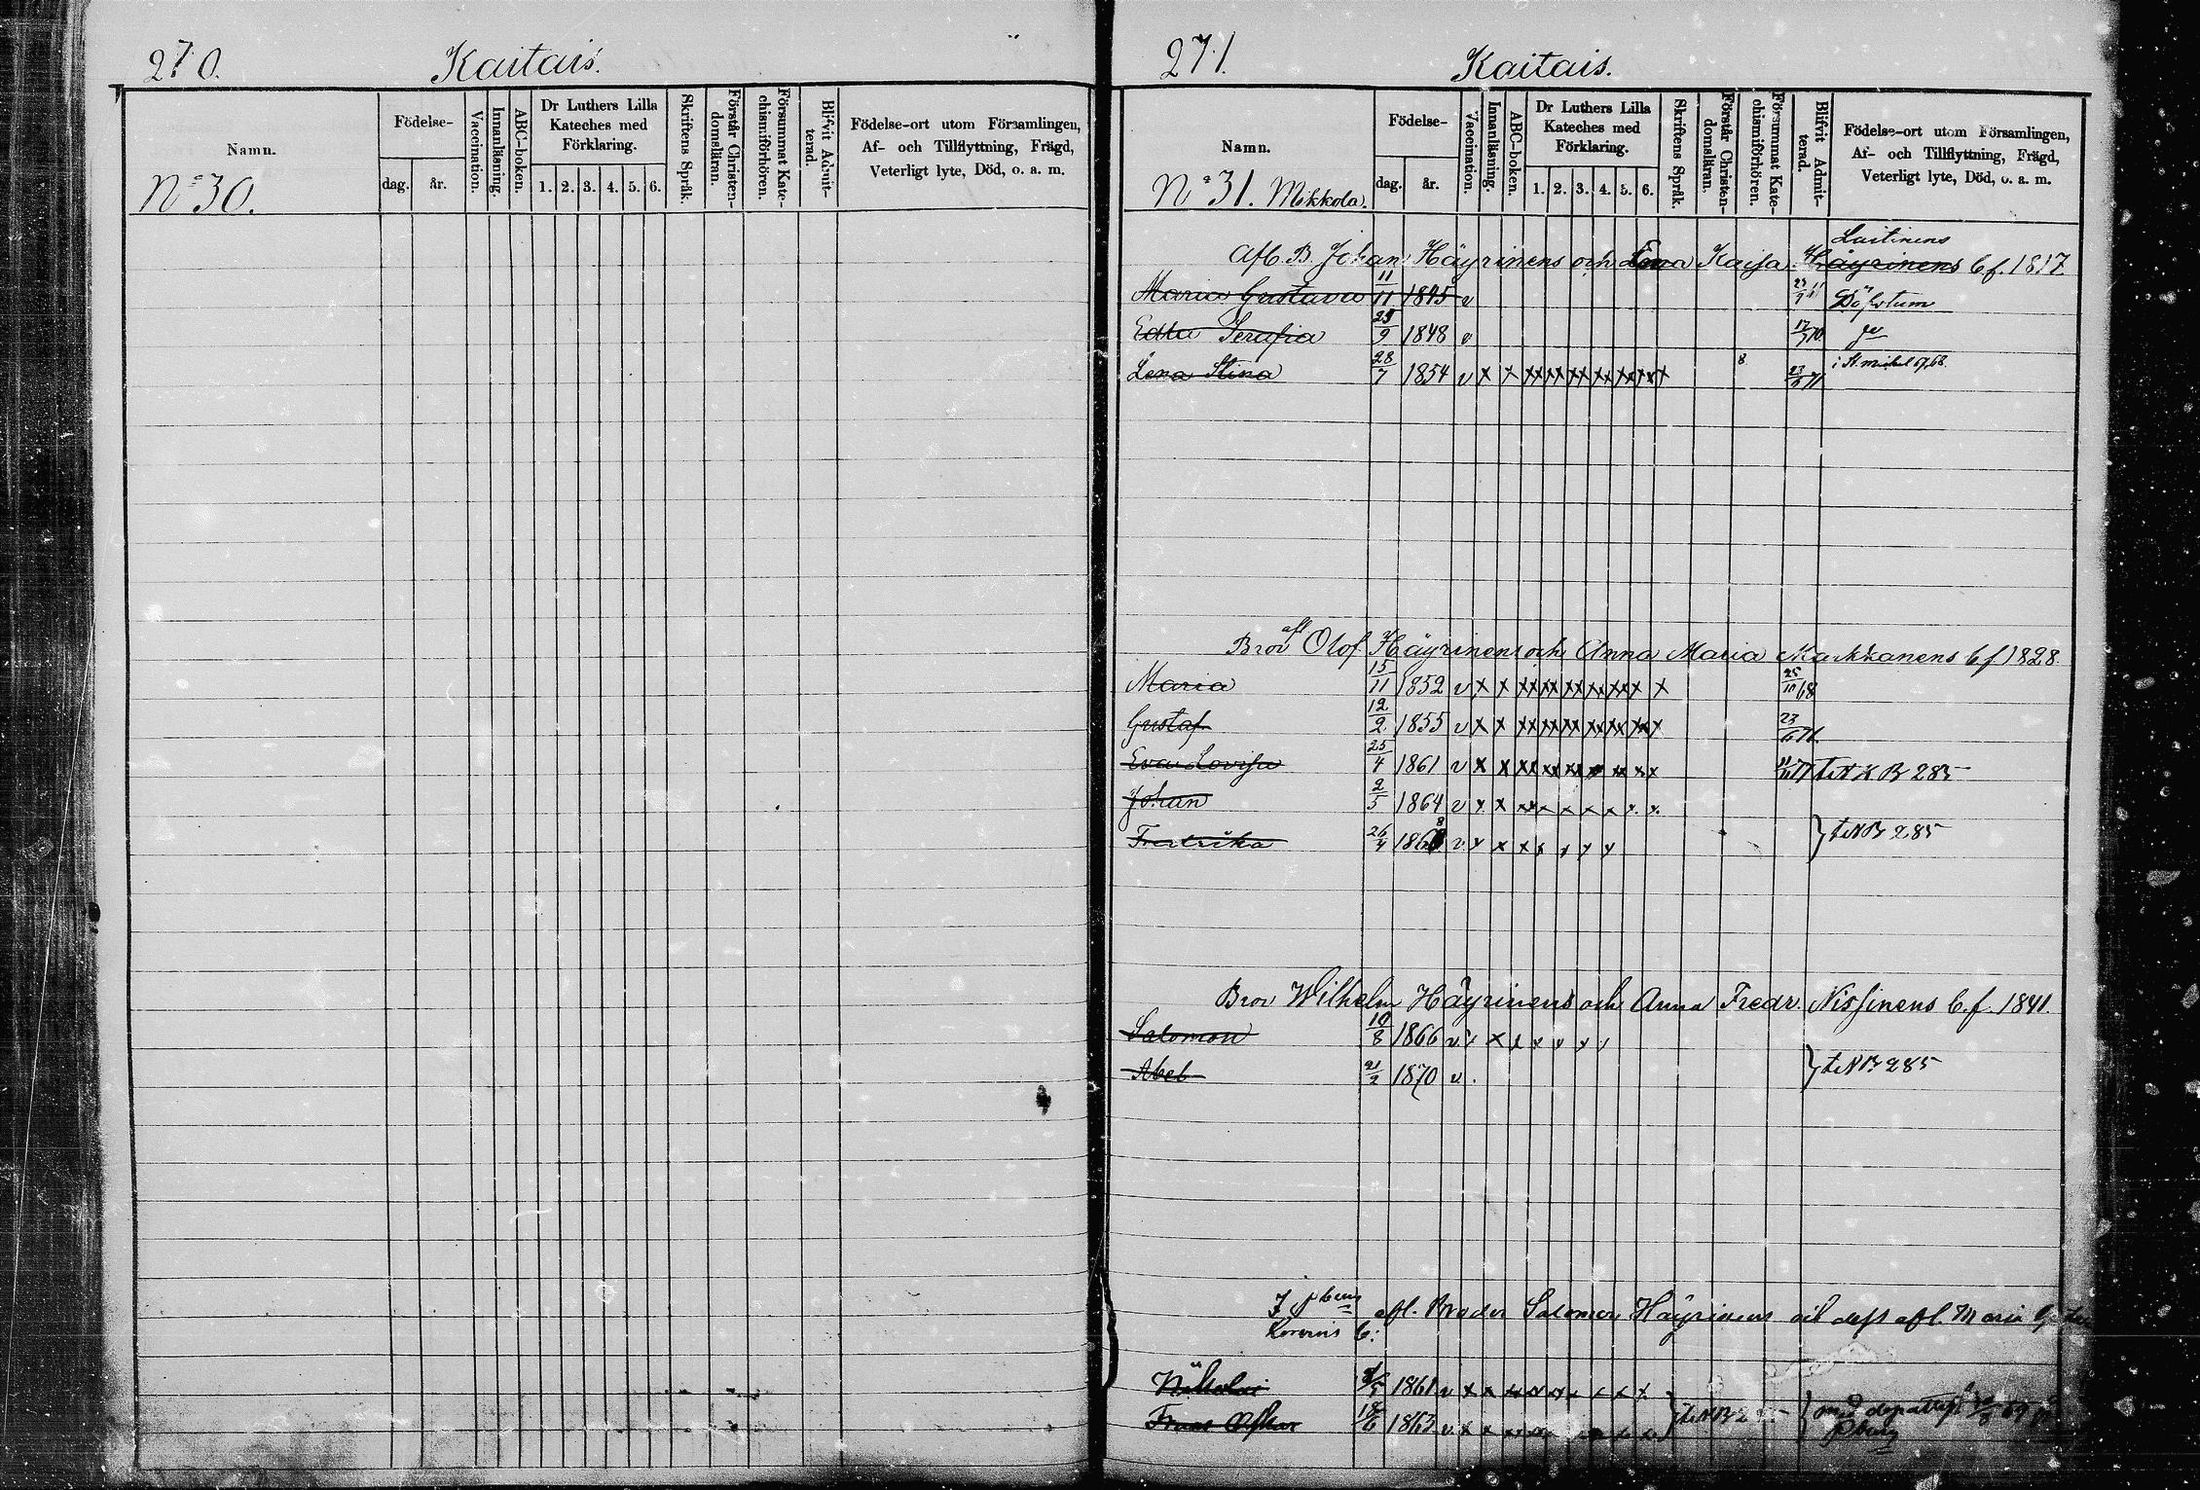 270.
Kaitais.
Namn.
Födelse-
dag. år.
Vaccination.
Innanläsning.
ABC-boken.
Dr Luthers Lilla
Kateches med
Förklaring.
1. 2. 3. 4. 5. 6.
Skriftens Språk.
Förstår Christen-
domsläran.
Försummat Kate-
chismiförhören.
Blifvit Admit-
terad.
Födelse-ort utom Församlingen,
Af- och Tillflyttning, Frägd,
Veterligt lyte, Död, o. a. m.
No 30.
271.
Kaitais.
Namn.
Födelse-
dag. år.
Vaccination.
Innanläsning.
ABC-boken.
Dr Luthers Lilla
Kateches med
Förklaring.
1. 2. 3. 4. 5. 6.
Skriftens Språk.
Förstår Christen-
domsläran.
Försummat Kate-
chismiförhören.
Blifvit Admit-
terad.
Födelse-ort utom Församlingen,
Af- och Tillflyttning, Frägd,
Veterligt lyte, Död, o. a. m.
No 31. Mikkola.
Laitinens
Afl. B. Johan Häyrinens och Lena Kaisa Häyrinens b.f. 1817
Maria Gustava 11/11 1845 v
Edla Serafia 25/9 1848 v
Lena Stina 28/7 1854 v x x xx xx xx xx xx xx x 8 23/6 71 i St michel
afl
Bror Olof Häyrinens och Anna Maria Markkanens b.f. 1828.
Maria 15/11 1852 v x x xx xx xx xx xx x x 25/10 68
Gustaf 12/2 1855 v x x xx xx xx xx xx xx x 23/6 71.
Eva Lovisa 25/4 1861 v x x xx xx xx x xx x x B 285
Johan 2/5 1864 v x x xx x x x x x x
Fredrika 26/4 1868 v x x x x x x x } B 285
Bror Wilhelm Häyrinens och Anna Fredr. Nissinens b.f. 1841.
Salomon 10/8 1866 v x x x x x x x
Abel 21/2 1870 v. } B 285
afl. Broder Salomon Häyrinens och dess afl. Maria
b:
Nikolai 1861 v x x xx xx xx x x x x
Frans Oskar 18/6 1863 v x x